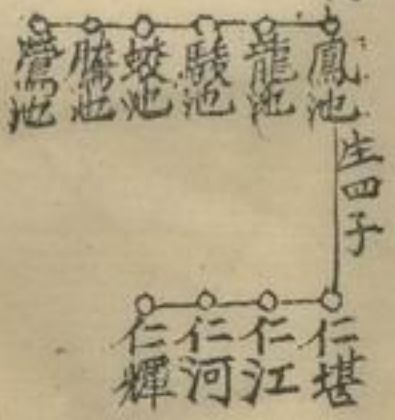 鳳池
龍池
駿池
蛟池
勝池
鶯池
生四子
仁堪
仁江
仁河
仁輝